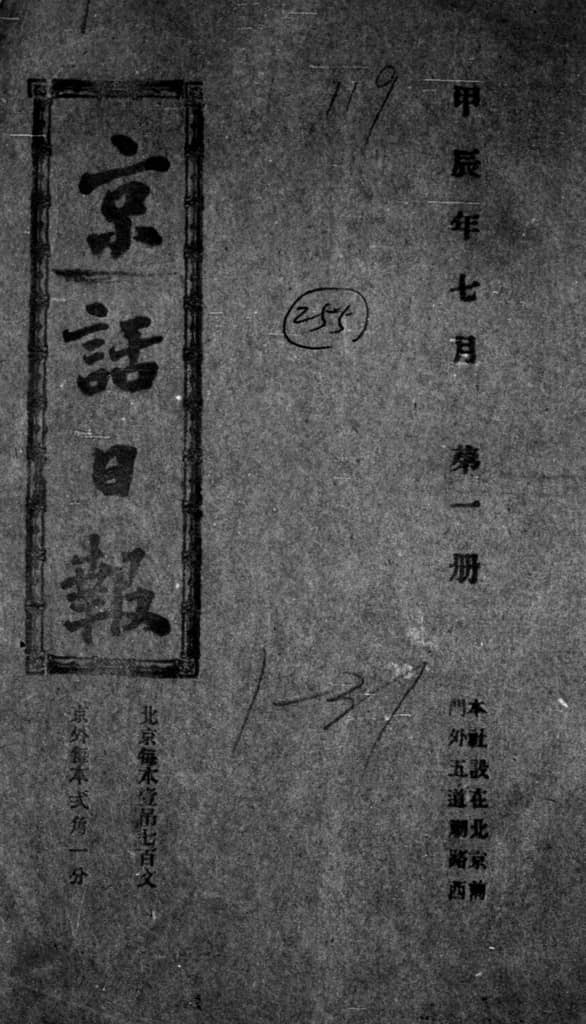 119
甲辰年七月 第一册
本社設在北京前
門外五道廟路西
255
1-31
京話日報
北京每本壹吊七百文
京外每本弍角一分